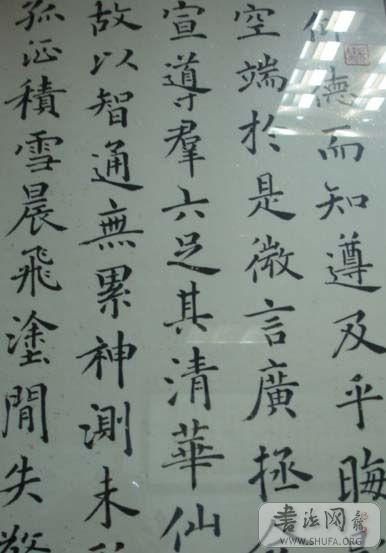 德而知遵及乎晦
空端於是微言廣拯
宣導羣六足其清華仙
故以智通無累神測未
孤征積雪晨飛塗閒失
書法网
WWW.SHUFA.ORG